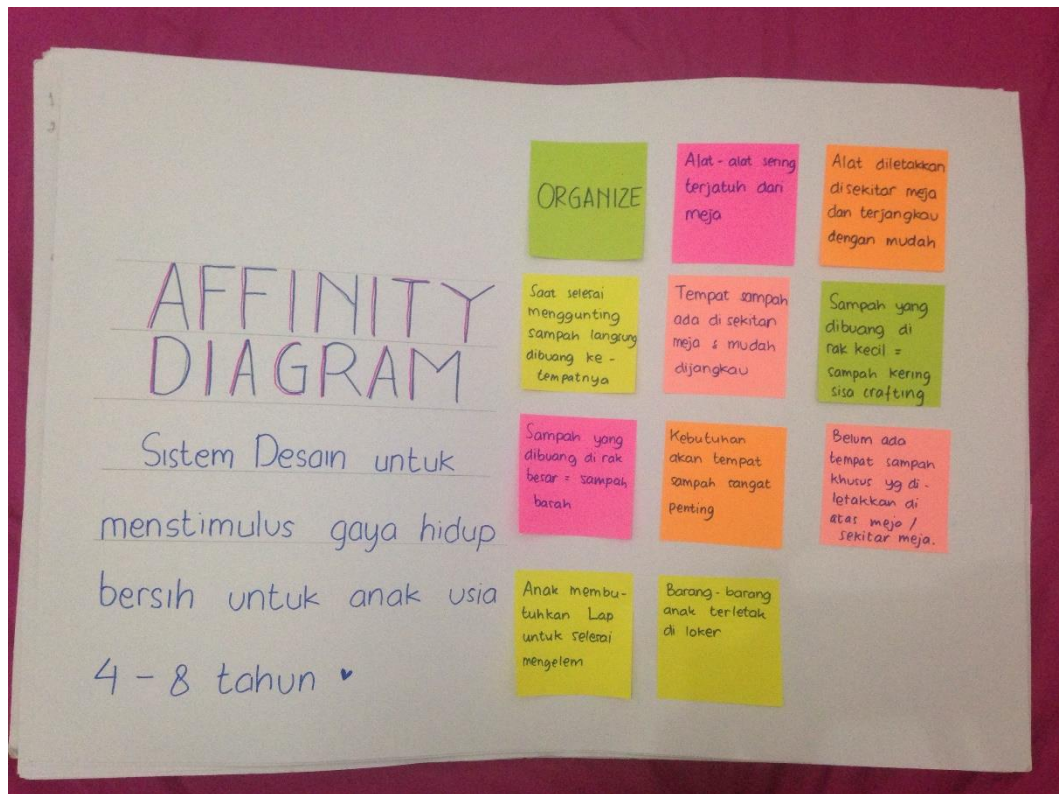 AFFINITY
DIAGRAM
Sistem Desain untuk
menstimulus gaya hidup
bersih untuk anak usia
4 - 8 tahun ♥
ORGANIZE
Alat - alat sering
terjatuh dari
meja
Alat diletakkan
disekitar meja
dan terjangkau
dengan mudah
Saat selesai
menggunting
sampah langsung
dibuang ke -
tempatnya
Tempat sampah
ada di sekitar
meja & mudah
dijangkau
Sampah yang
dibuang di
rak kecil =
sampah kering
sisa crafting
Sampah yang
dibuang di rak
besar = sampah
basah
Kebutuhan
akan tempat
sampah sangat
penting
Belum ada
tempat sampah
khusus yg di -
letakkan di
atas meja /
sekitar meja.
Anak membu-
tuhkan Lap
untuk selesai
mengelem
Barang - barang
anak terletak
di loker